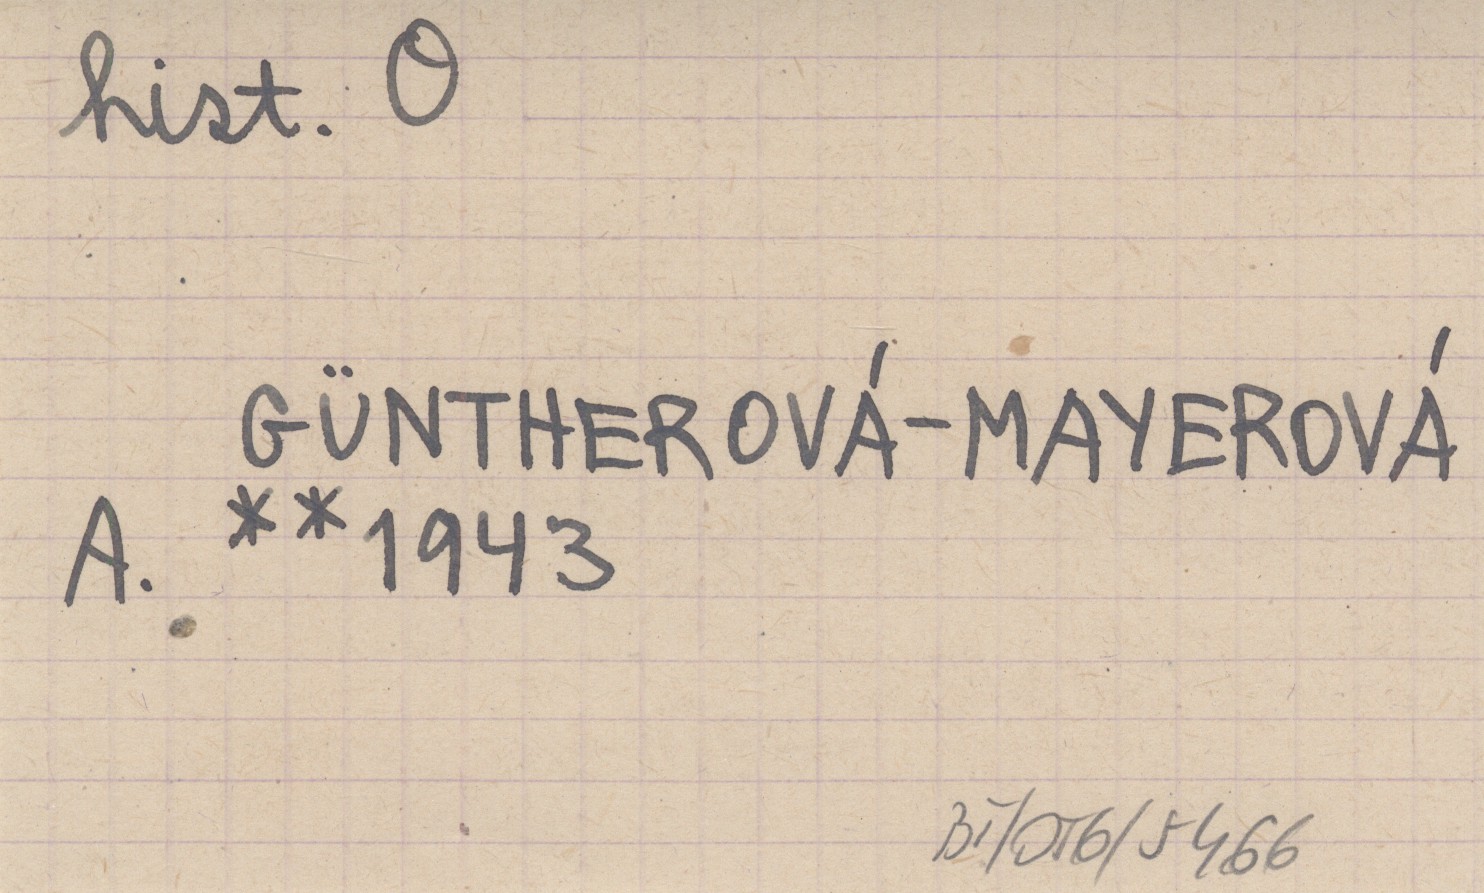 hist. O
GÜNTHEROVÁ-MAYEROVÁ
A. **1943
5466